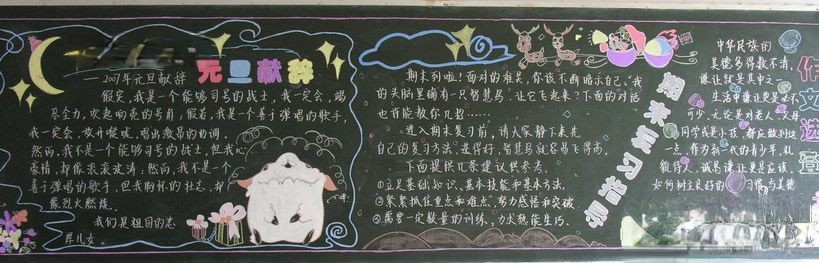 元旦献辞
——2007年元旦献辞
假定,我是一个能够司号的战士,我一定会,竭
尽全力,吹起响亮的号角,假若,我是一个善于弹唱的歌手,
我一定会,放开喉咙,唱出激昂的
然而,我不是一个能够司号的战士,但我心
豪情,却像滚滚波涛,然而,我不是一个
善于弹唱的歌手,但我胸怀的壮志,却
像烈火燃烧。
我们是祖国的忠
群儿女。
期末复习指导
期末到啦!面对的难关,你该不断暗示自己:我
的头脑里确有一只智慧鸟,让它飞起来?下面的对话
也许能帮你
进入期末复习前,请大家静下来找
自己的复习方法,这样好,智慧鸟就容易飞得高。
下面提供几条建议供参考。
①立足基础知识、基本技能和基本方法,
②紧紧抓住重点和难点,努力感悟和突破
③需要一定数量的训练,力求熟能生巧。
作文选登
中华民族的
美德多得数不清,
谦让就是其中之一
生活中谦让更是必不
可少,无论是对老人
同学或是小孩,都应做到这
一点。作为新一代的青少年,礼
能待人,诚是谦让更是应该,
如何树立良好的习惯与美德